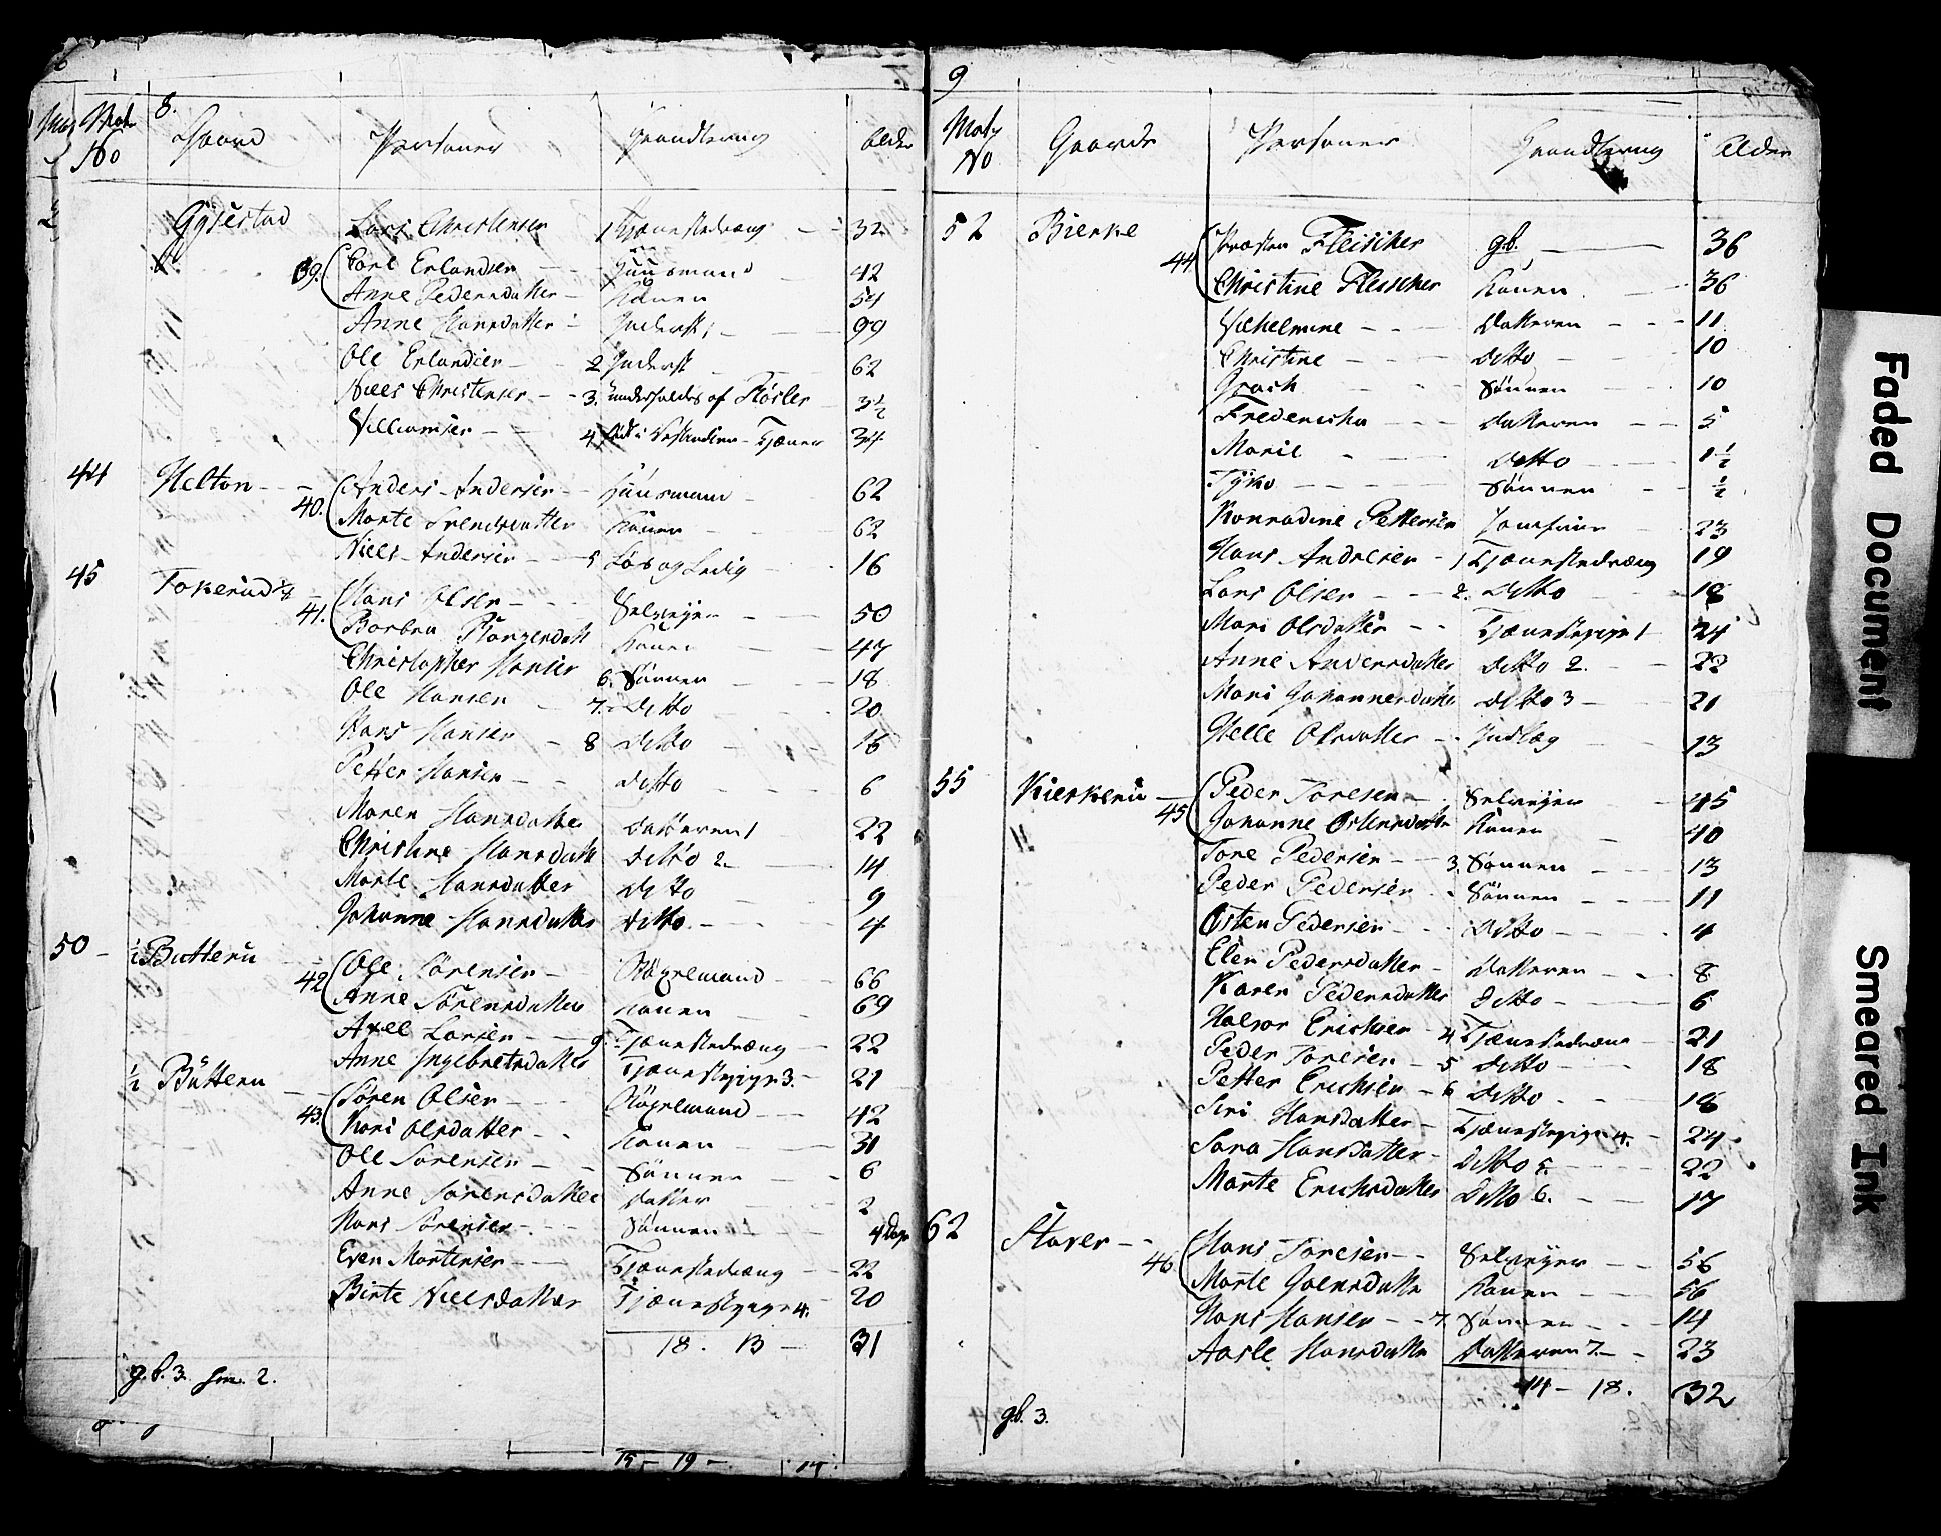 8.
Mat No Gaard Personer Haandtering Alder
Gysestad Lars Christensen 1 Tjenestedræng 32
39. Carl Erlandsen Huusmand 42
Anne Pedersdatter Konen 54
Anne Hansdatter Inderst 99
Ole Erlandsen 2 Inderst 62
Niels Christensen 3. underholdes af 3½
Villumsen 4 Tjener 34
44 Helton 40. Anders Andersen Huusmand 62
Marte Svendsdatter Konen 62
Niels Andersen 5 Løs og Ledig 16
45 Tokerud 41. Hans Olsen Selveyer 50
Barbra Konen 47
Christopher Hansen 6. Sönnen 18
Ole Hansen 7. Ditto 20
Hans Hansen 8 Ditto 16
Petter Hansen Ditto 6
Maren Hansdatter Datteren 1 22
Christine Hansdatt Ditto 2. 14
Marte Hansdatter Ditto 9
Johanne Hansdatter Ditto 4
50 ½ Butteru 42 Ole Sörensen 66
Anne Sörensdatter Konen 69
Axel Larsen 9. Tjenestedræng 22
Anne Ingebretsdatter Tjenestepige 3. 21
½ Butteru 43. Sören Olsen 42
Kari Olsdatter Konen 31
Ole Sorensen Sönnen 6
Anne Sorensdatter Datter 2
Hans Sörensen Sönnen 4 Dage
Even Mortensen Tjenestedræng 22
Birte Nielsdatter Tjenestepige 4. 20
18. 13 31
g.b. 3. 2.
15 – 19 –
9
Mat No Gaarde Personer Haandtering Alder
52 Bierke 44 Præsten Fleischer gb. 36
Christine Fleischer Konen 36
Vilhelmine Datteren 11
Christine Ditto 10
Sönnen 10
Fredericha Datteren 5
Marie Ditto 1½
Tyko Sönnen ½
Konradine Pettersen Jomfrue 23
Hans Andresen 1 Tjenestedræng 19
Lars Olsen 2. Ditto 18
Mari Olsdatter Tjenestepige 1 24
Anne Andersdatter Ditto 2. 22
Mari Johannesdatter Ditto 3 21
Helle Olsdatter Indlæg 13
55 Kierkeru 45 Peder Toresen Selveyer 45
Johanne Ostensdatter Konen 40
Tore Pedersen 3. Sönnen 13
Peder Pedersen Sönnen 11
Østen Pedersen Ditto 4
Elen Pedersdatter Datteren 8
Karen Pedersdatter Ditto 6
Halvor Erichsen 4 Tjenestedræng 21
Peder Toresen 5 Ditto 18
Petter Erichsen 6 Ditto 18
Siri Hansdatter Tjenestepige 4. 24
Sara Hansdatter Ditto 5. 22
Marte Erichsdatter Ditto 6. 17
62 Haver 46 Hans Toresen Selveyer 56
Marte Konen 56
Hans Hansen 7. Sönnen 14
Aasle Hansdatter Datteren 7. 23
14 – 18. 32
gb. 3.
Faded Document
Smeared Ink